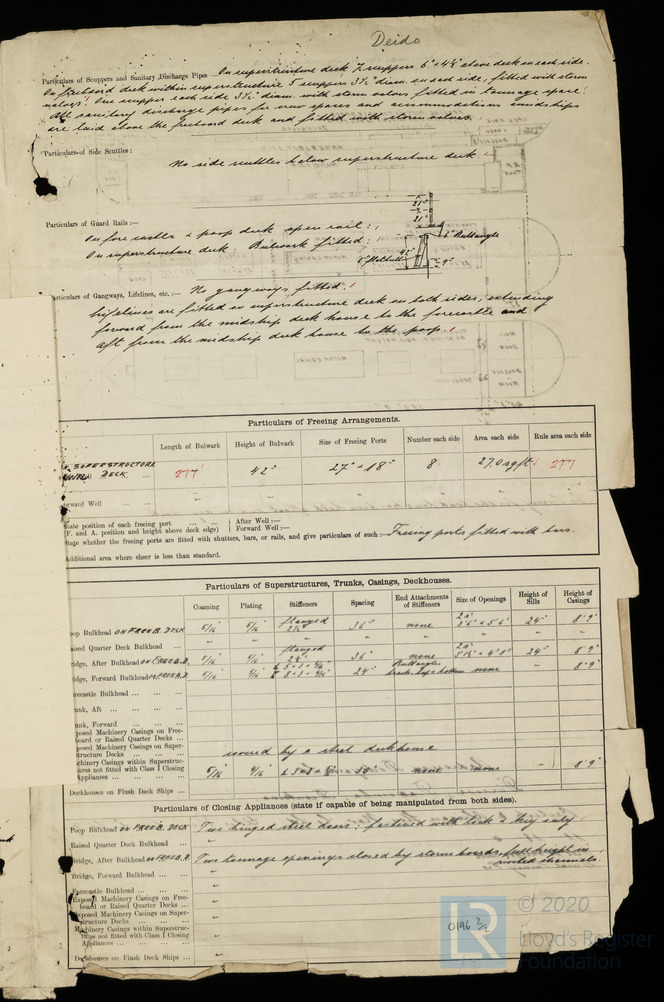 Deido
Particulars of Scuppers and Sanitary Discharge Pipes On superstructure deck 7 scuppers 6" × 4½" above deck on each side.
On freeboard deck within superstructure 5 scuppers 3½" diam. on each side, fitted with storm
valves! One scupper each side 3½" diam. with storm valves fitted in tonnage space!
All sanitary discharge pipes for crew spaces and accommodations amidships
are laid above the freeboard deck and fitted with storm valves.
Particulars of Side Scuttles:
No side scuttles below superstructure deck.
Particulars of Guard Rails:—
On forecastle & poop deck open rail:
On superstructure deck: Bulwark fitted:
21"
21"
6" Bulb angle
9"
articulars of Gangways, Lifelines, etc.:— No gangways fitted.
Lifelines are fitted on superstructure deck on both sides, extending
forward from the midship deck house to the forecastle and
aft from the midship deck house to the poop.
Particulars of Freeing Arrangements.
Length of Bulwark Height of Bulwark Size of Freeing Ports Number each side Area each side Rule area each side
SUPERSTRUCTURE
DECK 277' 42" 27" × 18" 8 27.0 sq ft 277
orward Well " "
State position of each freeing port After Well:—
(F. and A. position and height above deck edge) Forward Well:—
State whether the freeing ports are fitted with shutters, bars, or rails, and give particulars of such:— Freeing ports fitted with bars.
Additional area where sheer is less than standard.
Particulars of Superstructures, Trunks, Casings, Deckhouses.
Coaming Plating Stiffeners Spacing End Attachments of Stiffeners Size of Openings Height of Sills Height of Casings
oop Bulkhead ON FREEB. DECK 5/16 5/16 flanged 2½" 36" none 24" 8' 9"
aised Quarter Deck Bulkhead
idge, After Bulkhead ON FREEB. D. 5/16 5/16 flanged 2½" 36" none 24" 8' 9"
idge, Forward Bulkhead 5/16 5/16 24" none " 8' 9"
orecastle Bulkhead
unk, Aft
unk, Forward
posed Machinery Casings on Free-
board or Raised Quarter Decks
posed Machinery Casings on Super-
structure Decks covered by a steel deckhouse
chinery Casings within Superstruc-
tures not fitted with Class I Closing
Appliances none none – 8' 9"
Deckhouses on Flush Deck Ships
Particulars of Closing Appliances (state if capable of being manipulated from both sides).
Poop Bulkhead ON FREEB. DECK Two hinged steel doors; fastened with lock & key only!
Raised Quarter Deck Bulkhead
Bridge, After Bulkhead ON FREEB. D. Two tonnage openings closed by storm boards, full height in
riveted channels!
Bridge, Forward Bulkhead
Forecastle Bulkhead
Exposed Machinery Casings on Free-
board or Raised Quarter Decks
Exposed Machinery Casings on Super-
structure Decks
Machinery Casings within Superstruc-
tures not fitted with Class I Closing
Appliances
Deckhouses on Flush Deck Ships
0196 2/2
LR
© 2020
Lloyd's Register
Foundation